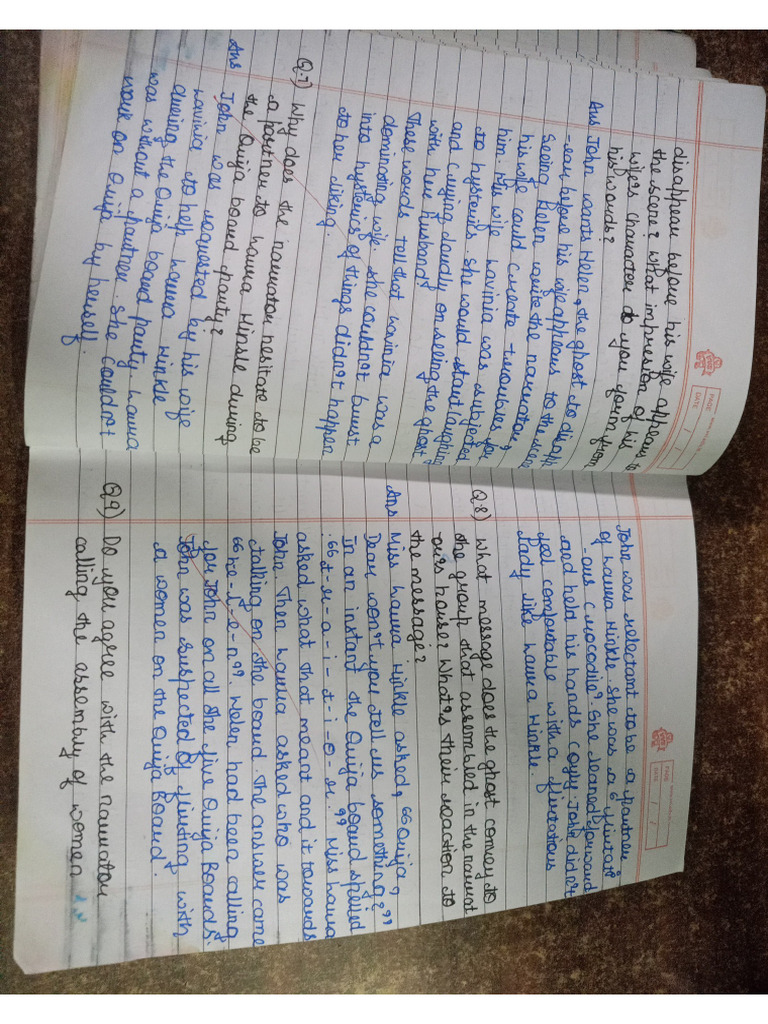 disappear before his wife appears to
the scene? What impression of his
wife's character do you form from
his words?
Ans John wants Helen, the ghost to disapp
-ear before his wife appears to the scene
seeing Helen write the narrator,
his wife could create troubles for
him. His wife Lavinia was subjected
to hysterics. She would start laughing
and crying loudly on seeing the ghost
with her husband.
These words tell that Lavinia was a
dominating wife. She couldn't burst
into hysterics if things didn't happen
to her liking.
Q.7) Why does the narrator hesitate to be
a partner to Laura Hinkle during
the Ouija board party?
Ans John was requested by his wife
Lavinia to help Laura Hinkle
during the Ouija board party. Laura
was without a partner. She couldn't
work on Ouija by herself.
PAGE
DATE / /
John was reluctant to be a partner
of Laura Hinkle. She was a "flirtati
-ous crocodile". She leaned forward
and held his hands coyly. John didn't
feel comfortable with a flirtatious
lady like Laura Hinkle.
Q.8) What message does the ghost convey to
the group that assembled in the narrat
or's house? What's their reaction to
the message?
Ans Miss Laura Hinkle asked, "Ouija,
Dear won't you tell us something?"
In an instant the Ouija board spelled
"t-r-a-i-t-o-r." Miss Laura
asked what that meant and it towards
John. Then Laura asked who was
talking on the board. The answer came
"He-l-e-n". Helen had been calling
for John on all the five Ouija Boards.
John was suspected of flirting with
a women on the Ouija Board.
Q.9) Do you agree with the narrator
calling the assembly of women
PAGE
DATE / /